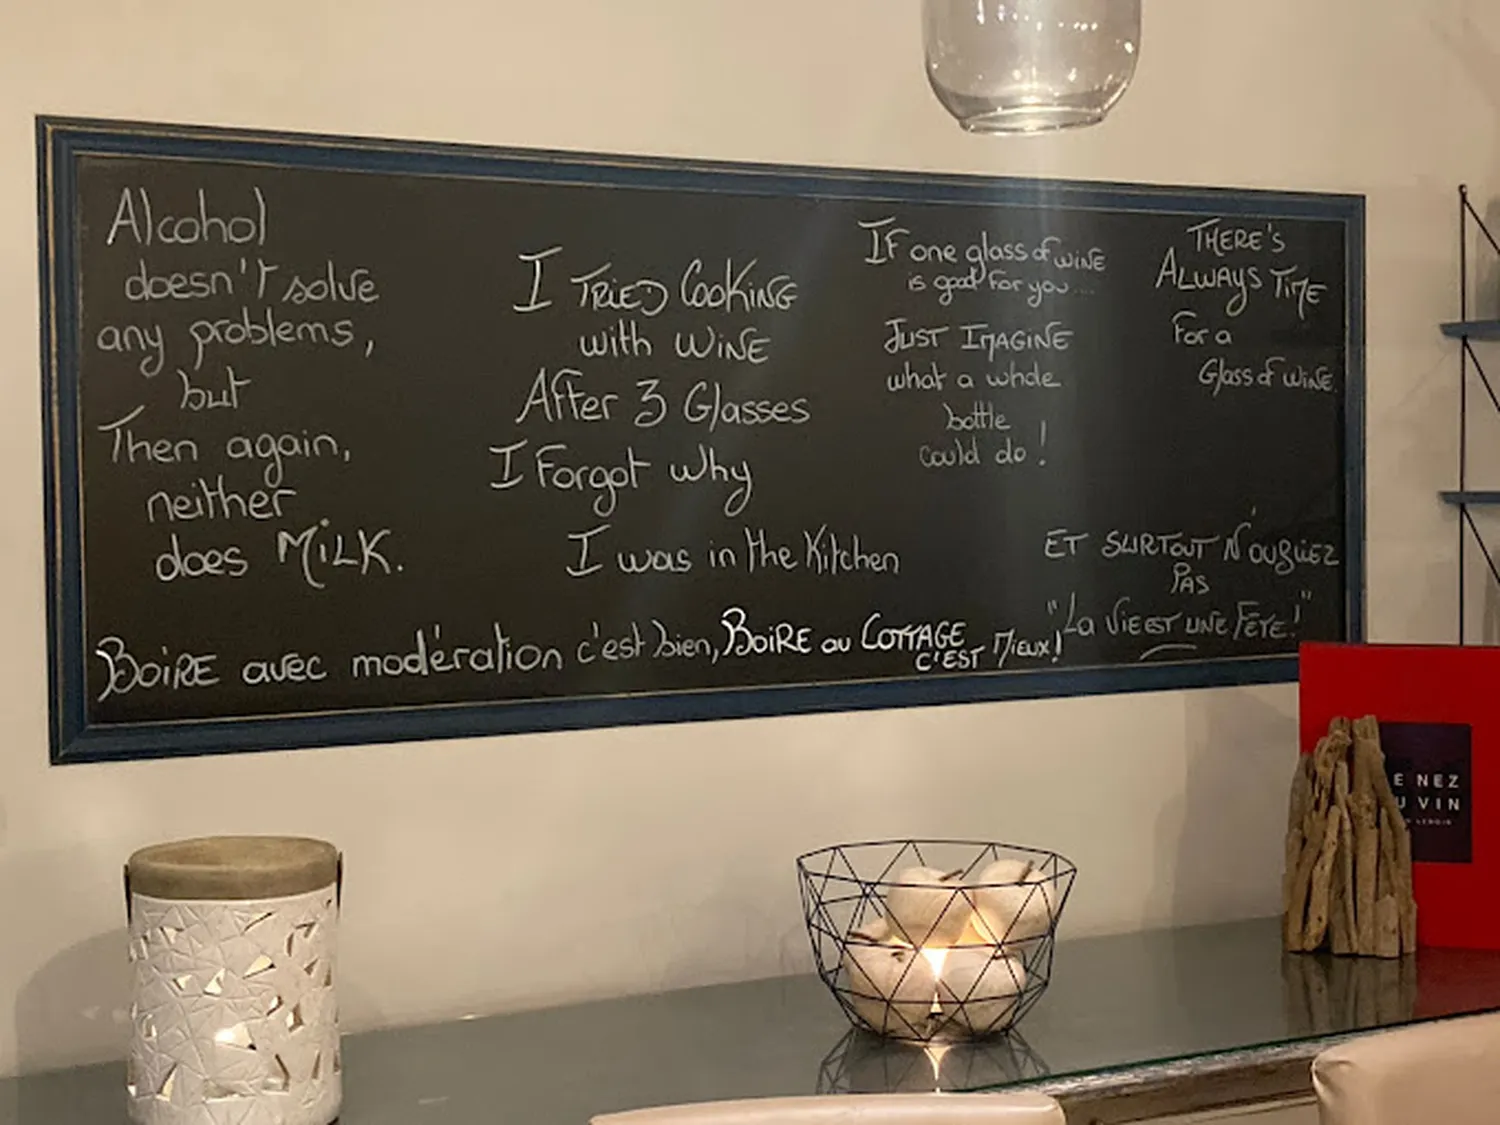 Alcohol
doesn't solve
any problems,
but
Then again,
neither
does MiLK.
I TRiED CooKiNG
with WiNE
After 3 Glasses
I Forgot why
I was in the Kitchen
IF one glass of WiNE
is good for you....
JUST IMAGiNE
what a whole
bottle
could do !
THERE'S
ALWAYS TiME
For a
Glass of WiNE.
BoiRE avec modération c'est bien, BoiRE au COTTAGE
C'EST MiEUX!
ET SURTOUT N'OUBLiEZ
PAS
"La ViE EST UNE FÊTE!"
E NEZ
U VIN
LENOIR